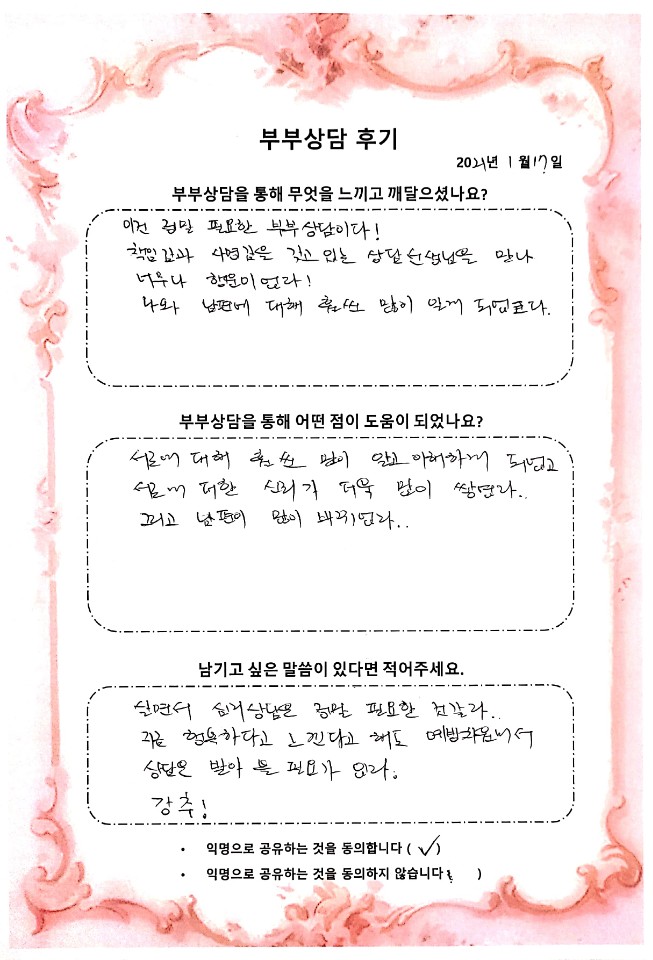 부부상담 후기
2021년 1월 17일
부부상담을 통해 무엇을 느끼고 깨달으셨나요?
이건 정말 필요한 부부상담이다!
책임감과 사명감을 갖고 있는 상담선생님을 만나
너무나 행운이었다!
나와 남편에 대해 훨씬 많이 알게 되었다.
부부상담을 통해 어떤 점이 도움이 되었나요?
서로에 대해 훨씬 많이 알고 이해하게 되었고
서로에 대한 신뢰가 더욱 많이 쌓였다..
그리고 남편이 많이 바뀌었다..
남기고 싶은 말씀이 있다면 적어주세요.
살면서 심리상담은 정말 필요한 것같다..
지금 행복하다고 느낀다고 해도 예방차원에서
상담을 받아 볼 필요가 있다.
강추!
• 익명으로 공유하는 것을 동의합니다 ( ✓ )
• 익명으로 공유하는 것을 동의하지 않습니다 ( )